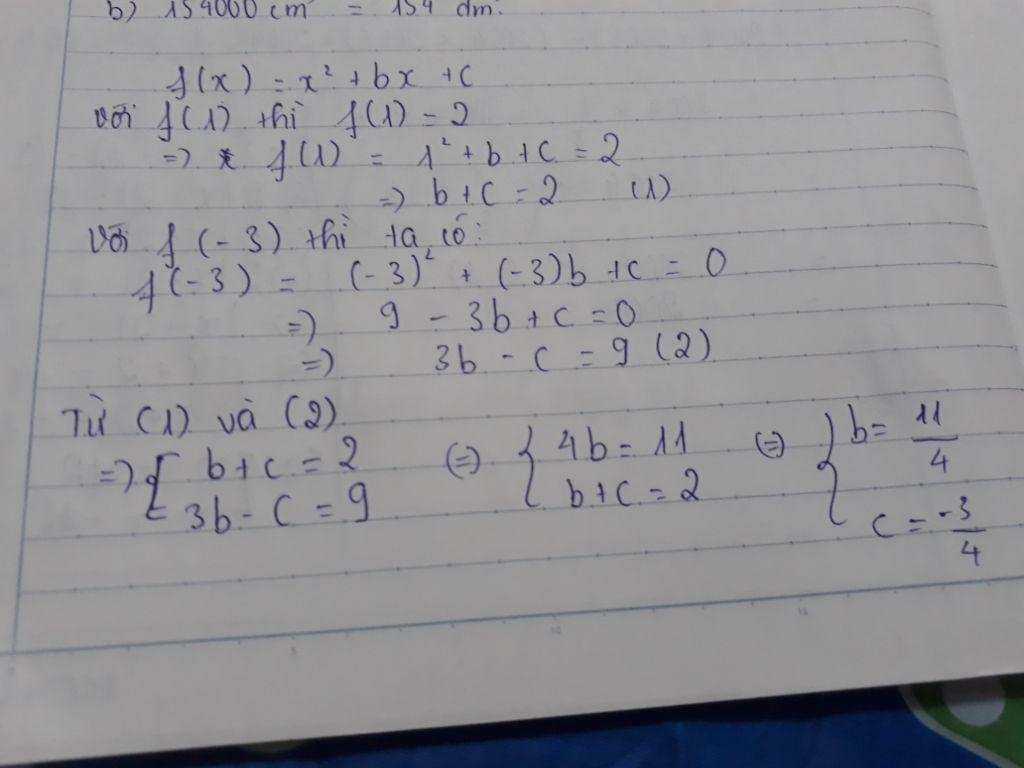 b) 154000 cm = 154 dm.
f(x) = x² + bx + c
với f(1) thì f(1) = 2
=> f(1) = 1² + b + c = 2
=> b + c = 2 (1)
Với f(-3) thì ta có:
f(-3) = (-3)² + (-3)b + c = 0
=) 9 - 3b + c = 0
=) 3b - c = 9 (2)
Từ (1) và (2)
=> { b + c = 2 (=) { 4b = 11 (=) { b = 11/4
3b - c = 9 b + c = 2 c = -3/4
5 10 15